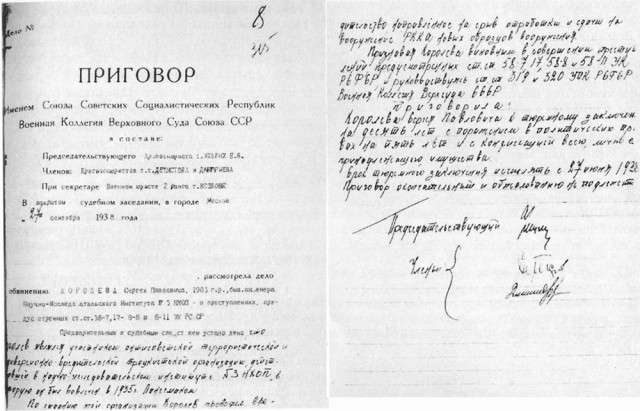 Дело №
8
ПРИГОВОР
Именем Союза Советских Социалистических Республик
Военная Коллегия Верховного Суда Союза ССР
в составе:
Председательствующего
Членов:
При секретаре Военном юристе 2 ранга т.
В закрытом судебном заседании, в городе Москве
„27“ сентября 1938 года
, рассмотрела дело
обвинению: КОРОЛЕВА Сергея Павловича, 1906 г.р., быв. инженера
Научно-Исследовательского Института № 3 НКОП - в преступлениях, пре-
дусмотренных ст.ст. 58-7, 17- и УК РСФСР
Предварительным и судебным следствием установлено что
Королев являлся участником антисоветской террористической и
диверсионно-вредительской троцкистской организации,
в научно-исследовательском институте №3 НКОП, в
которую он был вовлечен в 1935г. Лангемаком.
По заданию этой организации Королев проводил вре-
дительство направленное на срыв отработки и сдачи на
вооружение РККА новых образцов вооружения.
Признавая Королева виновным в совершении преступ-
лений предусмотренных ст.ст. 58-7, 17-58-8 и 58-11 УК
РСФСР и руководствуясь ст.ст. 319 и 320 УПК РСФСР
Военная Коллегия Верхсуда СССР
Приговорила:
Королева Сергея Павловича к тюремному заключению
на десять лет с поражением в политических пра-
вах на пять лет и с конфискацией всего, лично ему
принадлежащего имущества.
Срок тюремного заключения исчислять с 27 июня 1938
Приговор окончательный и обжалованию не подлежит
Председательствующий
Члены